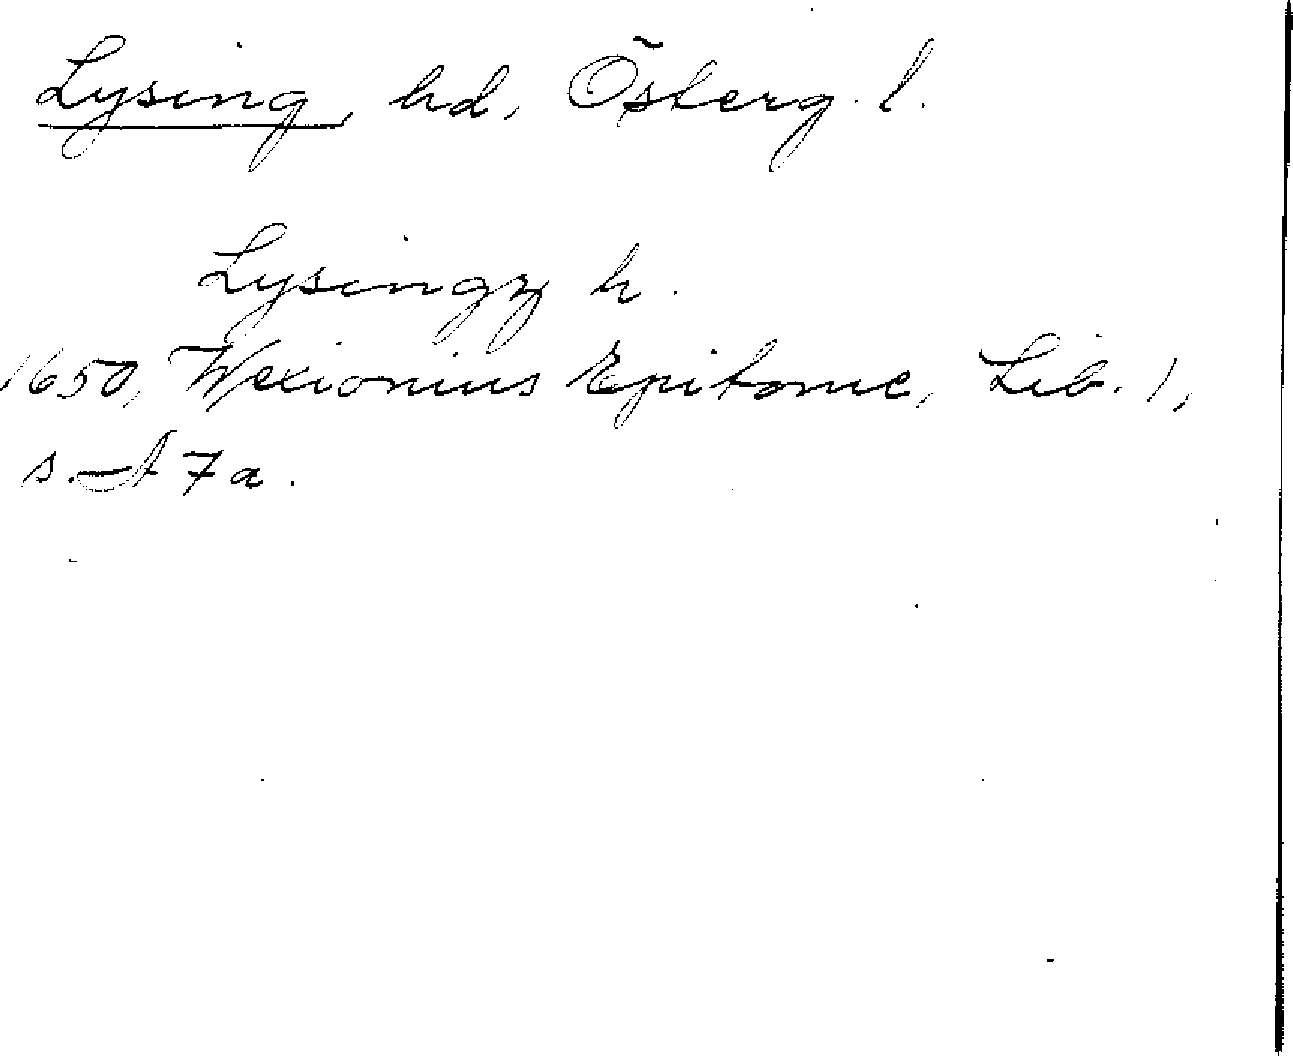 Lysing, hd, Österg. l.
Lysingz h.
1650, Wexionius Epitome, Lib. 1,
s. A 7 a.